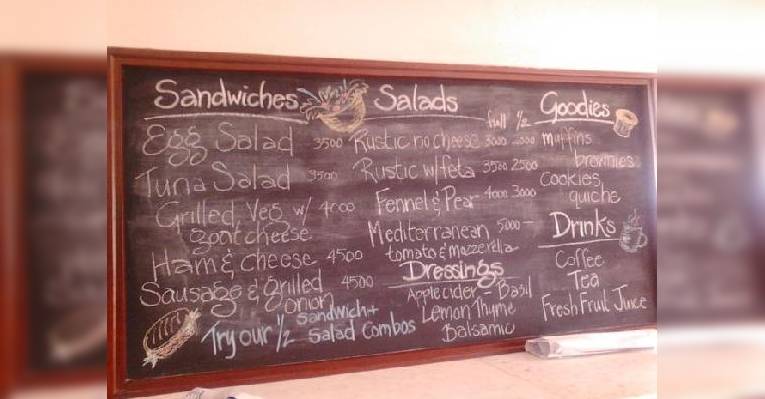 Sandwiches
Egg Salad 3500
Tuna Salad 3500
Grilled Veg w/ 4000
goat cheese
Ham & cheese 4500
Sausage & grilled 4500
onion
Try our 1/2 Sandwich +
Salad Combos
Salads
full 1/2
Rustic no cheese 3000 2000
Rustic w/feta 3500 2500
Fennel & Pear 4000 3000
Mediterranean 5000 —
tomato & mozzerella
Dressings
Apple cider - Basil
Lemon Thyme
Balsamic
Goodies
muffins
brownies
Cookies,
quiche
Drinks
Coffee
Tea
Fresh Fruit Juice